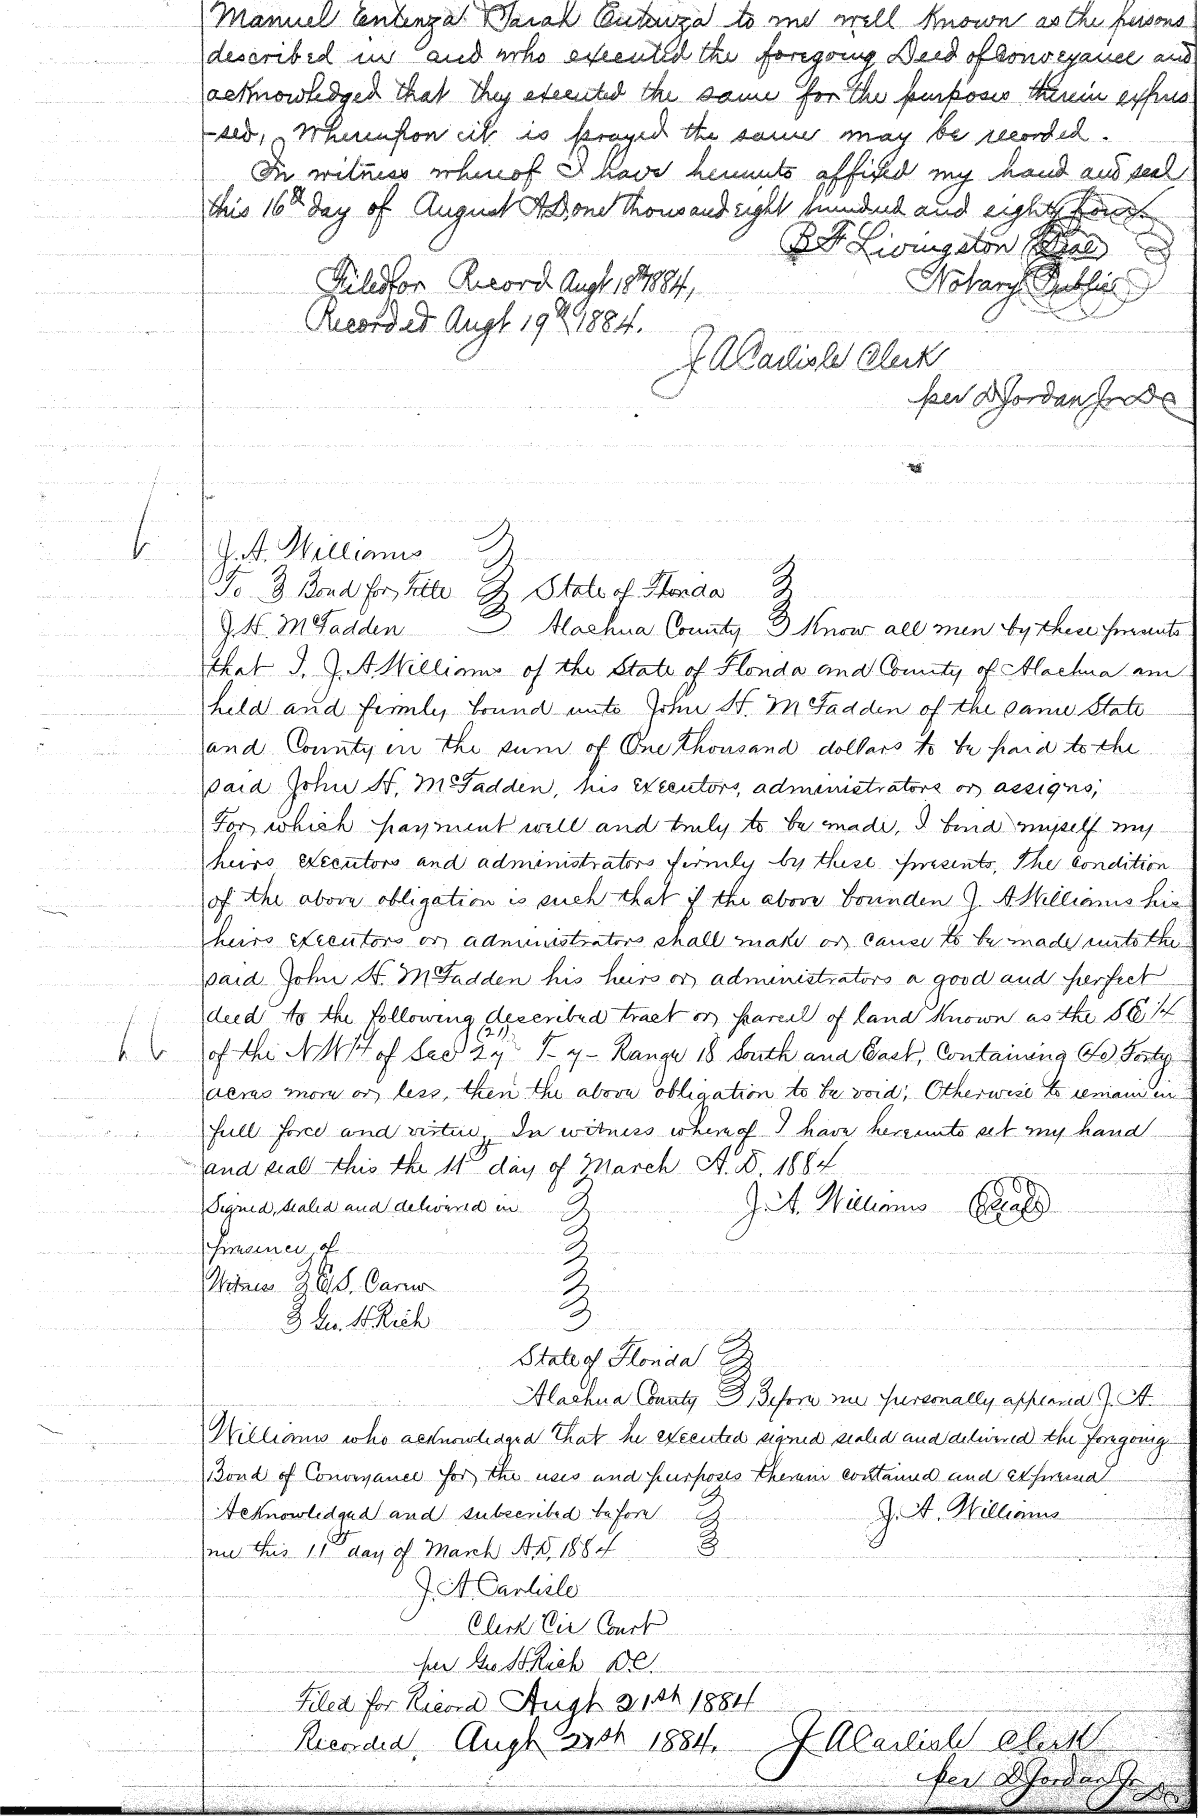 Manuel Entenza & Sarah Entenza to me well known as the persons
described in and who executed the foregoing Deed of Conveyance and
acknowledged that they executed the same for the purposes therein expres
-sed, Whereupon it is prayed the same may be recorded.
In witness whereof I have hereunto affixed my hand and seal
this 16th day of August A.D. one thousand eight hundred and eighty four.
B F Livingston (Seal)
Notary Public
Filed for Record Augt 18th 1884,
Recorded Augt 19th 1884.
J A Carlisle Clerk
per D Jordan Jr DC
J. A. Williams
To } Bond for Title } State of Florida }
J. H. McFadden } Alachua County } Know all men by these presents
that I, J. A Williams of the State of Florida and County of Alachua am
held and firmly bound unto John H. McFadden of the same State
and County in the sum of One thousand dollars to be paid to the
said John H. McFadden, his executors, administrators or assigns;
For which payment well and truly to be made, I bind myself my
heirs executors and administrators firmly by these presents, The condition
of the above obligation is such that if the above bounden J. A Williams his
heirs executors or administrators shall make or cause to be made unto the
said John H. McFadden his heirs or administrators a good and perfect
deed to the following described tract or parcel of land Known as the SE 1/4
(21)
of the NW 1/4 of Sec 27 T- 7- Range 18 South and East, Containing (40) Forty
acres more or less, then the above obligation to be void; Otherwise to remain in
full force and virtue, In witness whereof I have hereunto set my hand
and seal this the 11th day of March A. D. 1884
Signed, sealed and delivered in } J. A. Williams (Seal)
presence of
Witness } E. S. Carew
} Geo. H. Rich
State of Florida }
Alachua County } Before me personally appeared J. A.
Williams who acknowledged that he executed signed sealed and delivered the foregoing
Bond of Conveyance for the uses and purposes therein contained and expressed
Acknowledged and subscribed before } J. A. Williams
me this 11th day of March A.D. 1884 }
J. A. Carlisle
Clerk Cir Court
per Geo H Rich D.C.
Filed for Record Augt 21th 1884
Recorded, Augt 1884. J A Carlisle Clerk
per D Jordan Jr DC